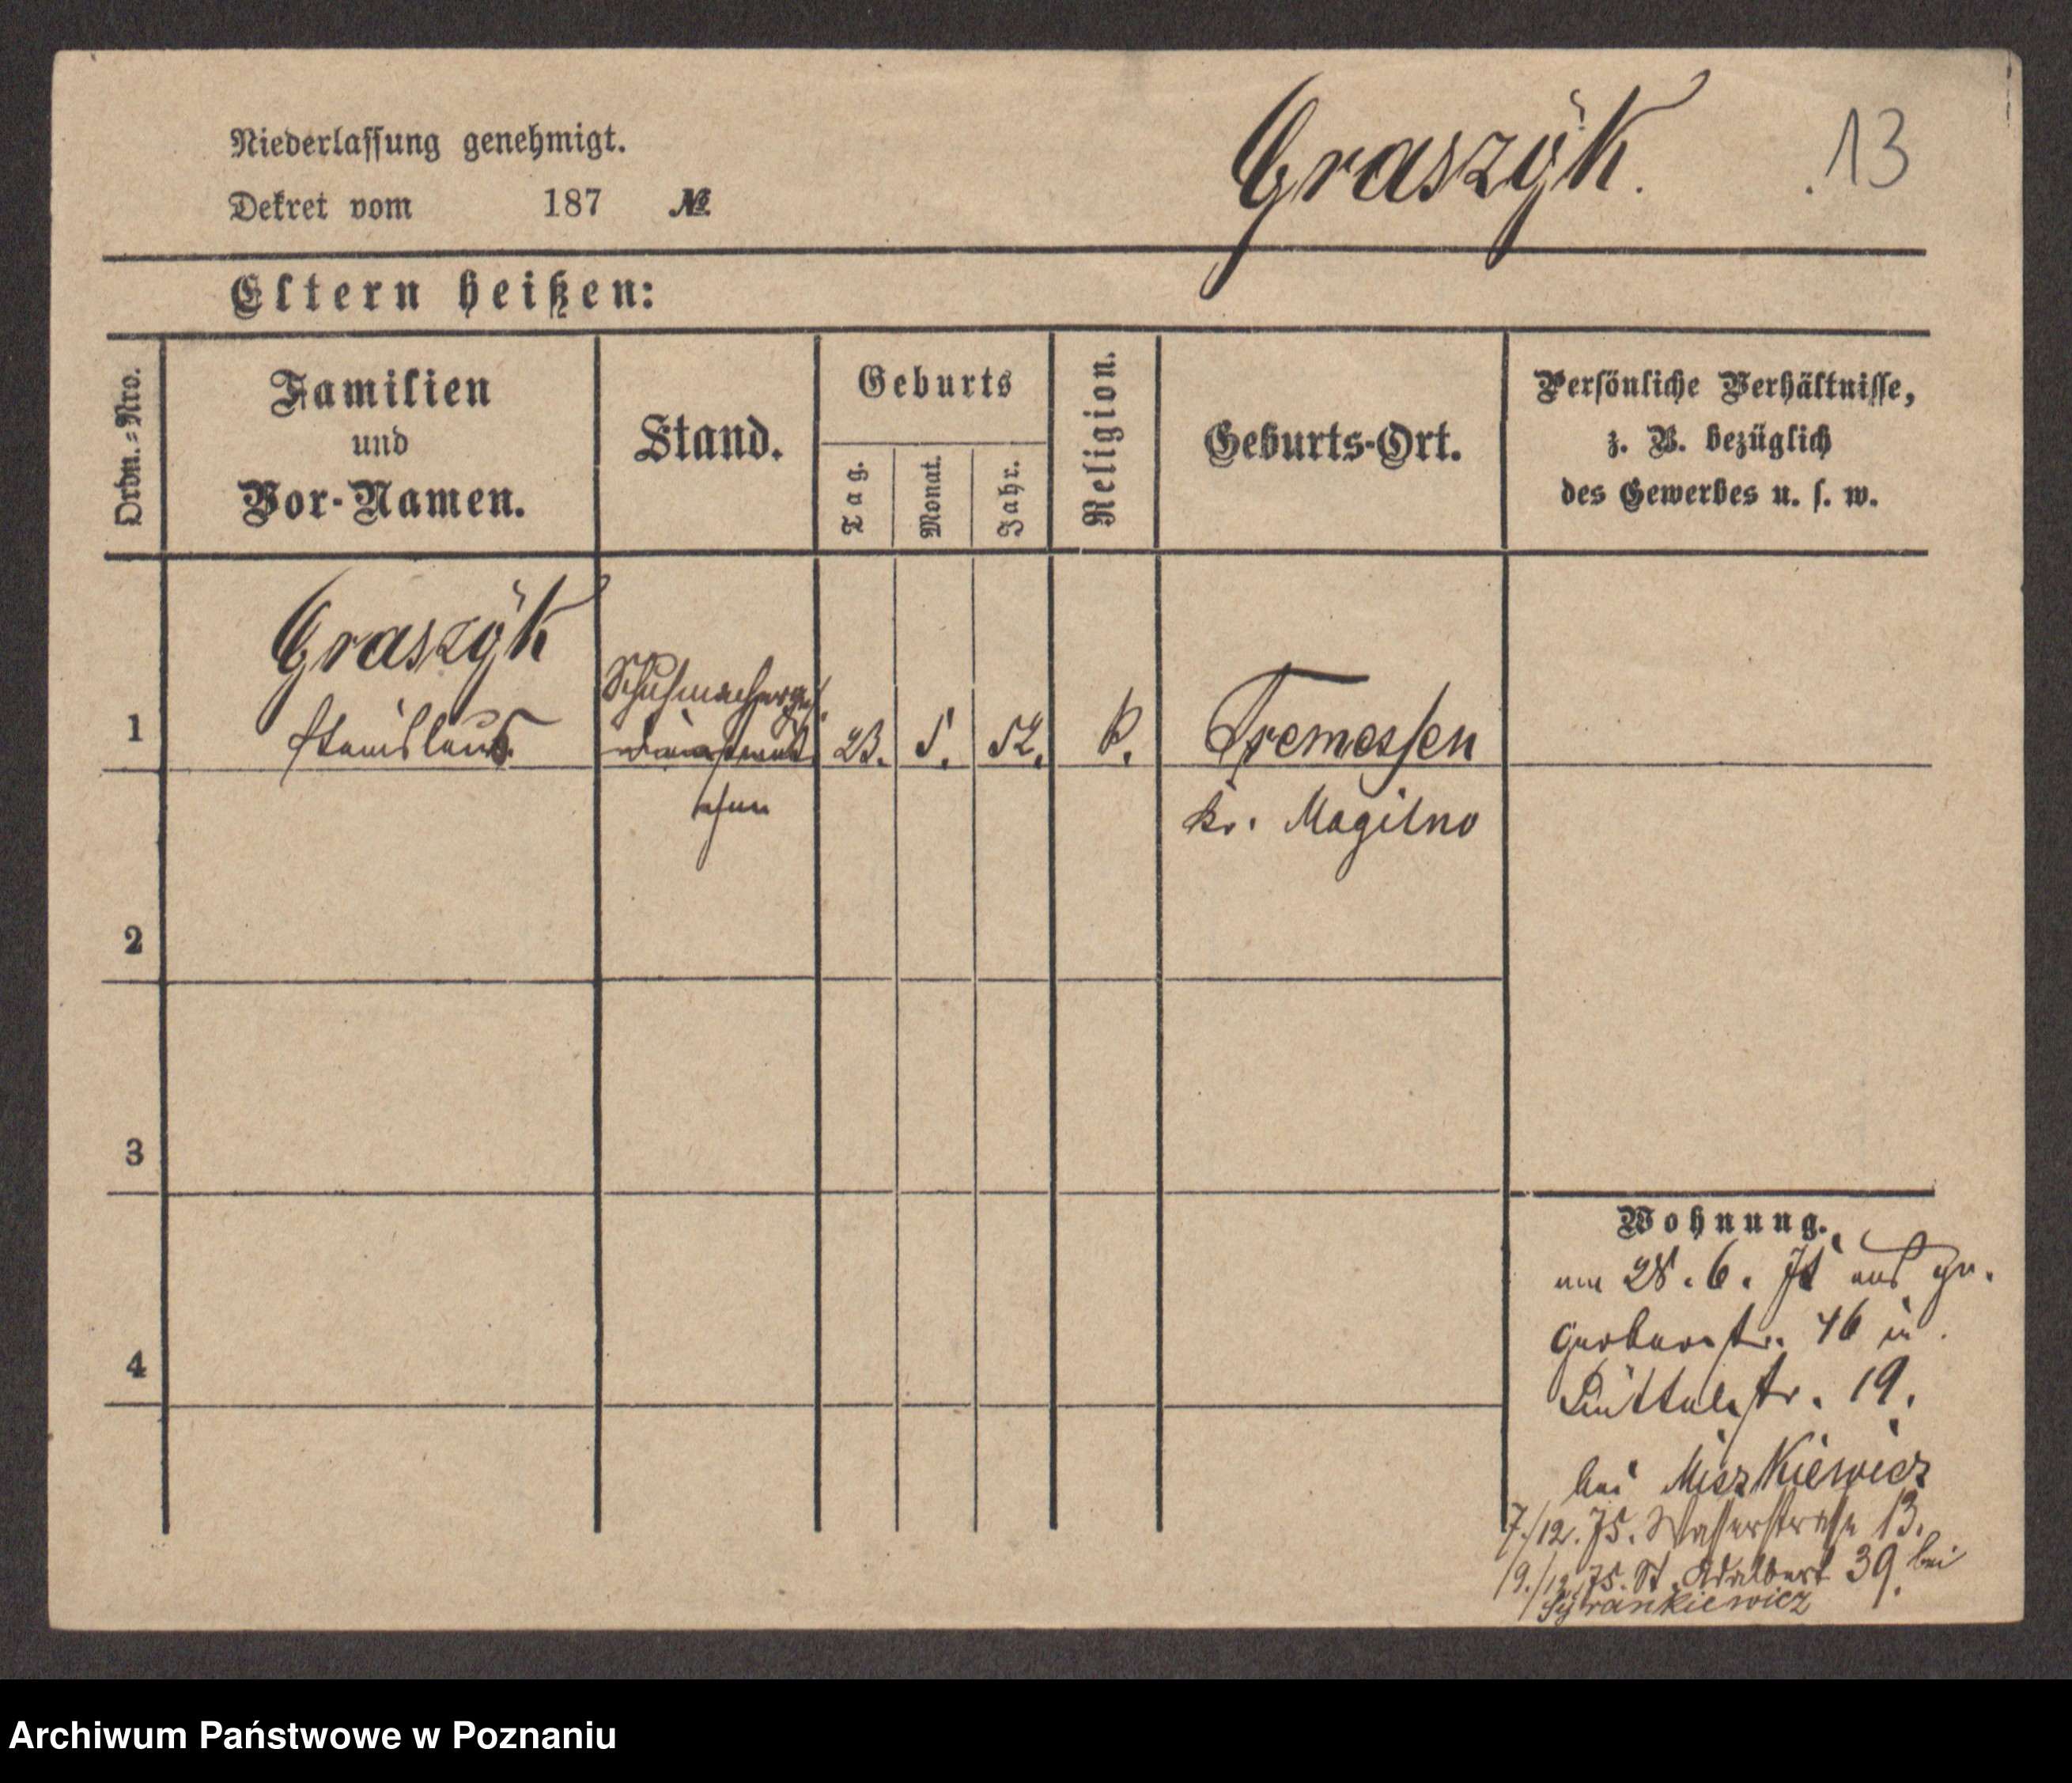 Niederlassung genehmigt.
Dekret vom 187 №
Graszÿk.
13
Eltern heißen:
Ordn.-Nro.
Familien
und
Vor-Namen.
Stand.
Geburts
Tag.
Monat.
Jahr.
Religion.
Geburts-Ort.
Persönliche Verhältnisse,
z. B. bezüglich
des Gewerbes u. s. w.
Graszÿk
Schuhmacherges.
1 Stanislaus. 23. 5. 52. k. Tremessen
Kr. Mogilno
2
3
4
Wohnung.
am 28. 6. 75 aus Gr.
Gerberstr. 46 in
Büttelstr. 19.
bei Miszkiewicz
7./12. 75. Wasserstraße 13.
19./12. 75. St. Adalbert 39. bei
Archiwum Państwowe w Poznaniu